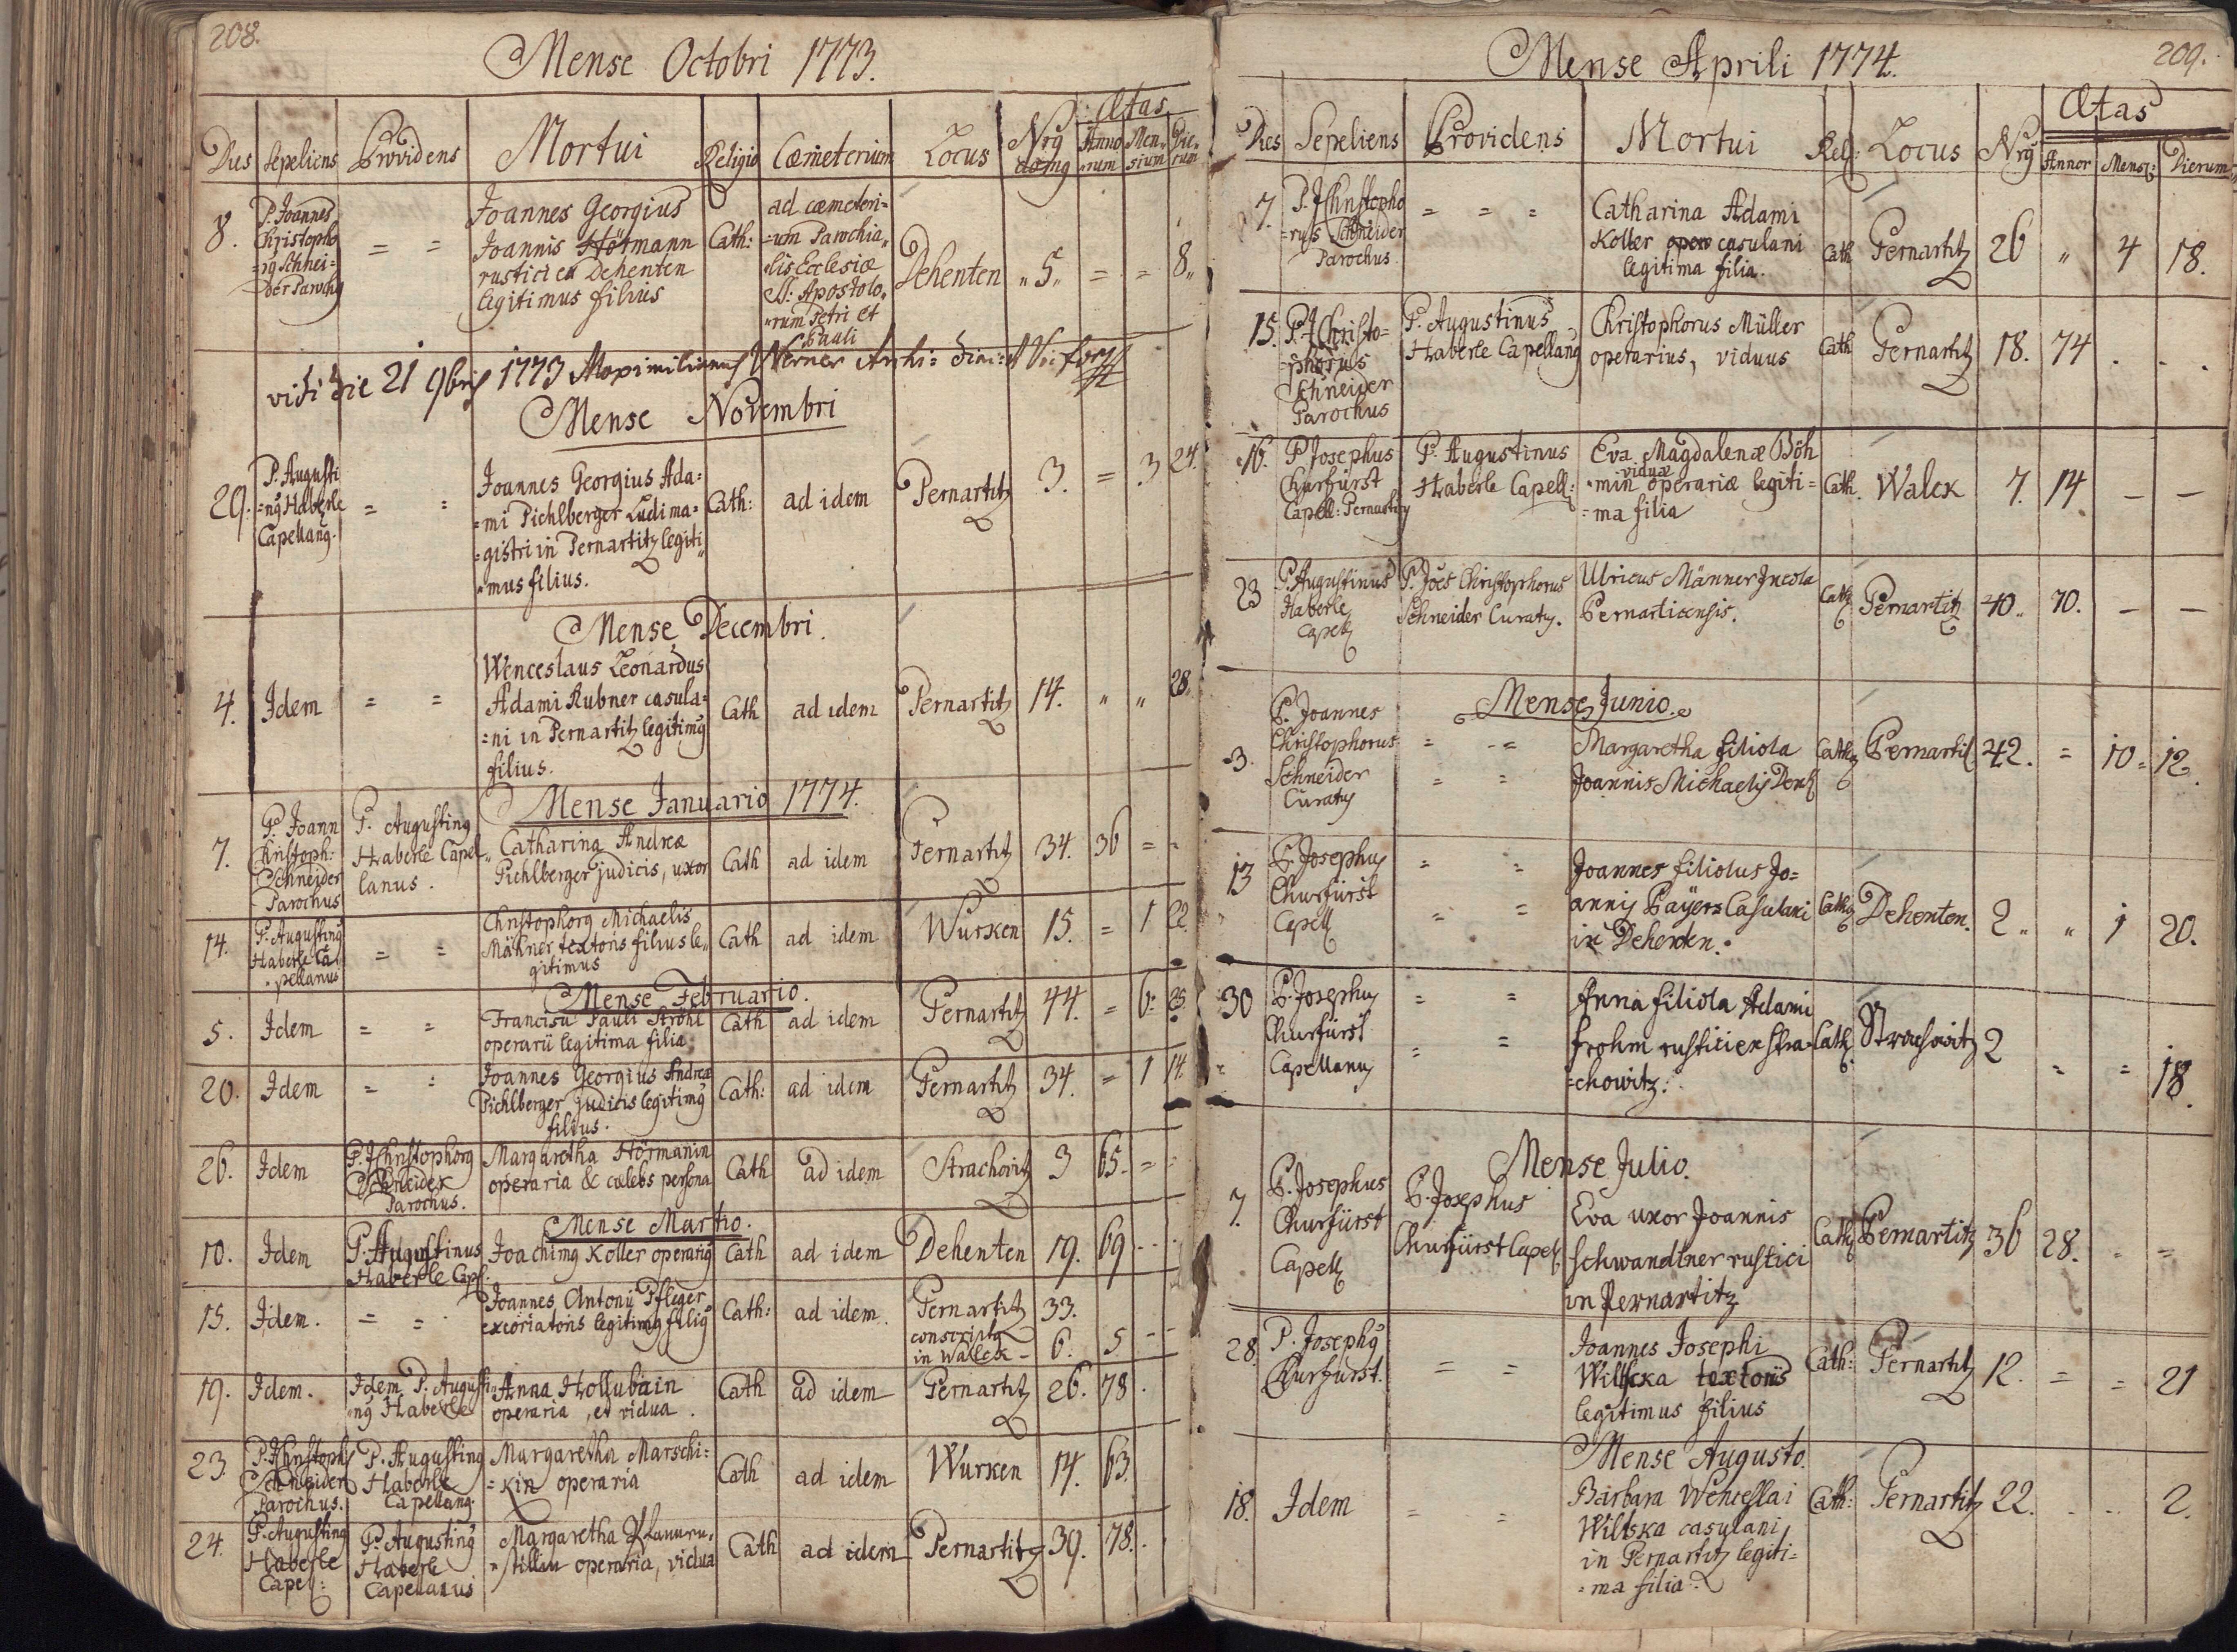 208.
Mense Octobri 1773.
Dies Sepeliens Providens Mortui Religio Cœmeterium Locus Nrq domq Ætas
Anno=rum Men=sium Die=rum
8. P. Joannes Christopho=rq Schnei=der Parochq
= =
Joannes Georgius
Joannis Hörmann
rustici ex Dehenten
legitimus filius
Cath:
ad cœmeteri=
=um Parochia„
„lis Ecclesiæ
SS: Apostolo„
„rum Petri et
Pauli
Dehenten „5„ = = 8„
vidi die 21 9bris 1773 Maximilianus Werner Archi: Vic: for
Mense Novembri
29. P. Augusti
=nq Haberle
Capellanq.
= =
Joannes Georgius Ada=
=mi Pichlberger Ludima=
=gistri in Pernartitz legiti„
„mus filius.
Cath: ad idem Pernartitz 3. = 3 24.
Mense Decembri.
4. Idem = =
Wenceslaus Leonardus
Adami Rubner casula=
=ni in Pernartitz legitimq
filius.
Cath ad idem Pernartitz 14. „ „ 28.
Mense Januario 1774.
7. P. Joann
Christoph:
Schneider
Parochus
P. Augustinq
Haberle Capel„
lanus.
Catharina Andreæ
Pichlberger judicis, uxor
Cath ad idem Pernartitz 34. 36 = =
14. P. Augustinq
Haberle Ca
pellanus
= =
Christophorq Michaelis
Mähner textoris filius le„
gitimus
Cath ad idem Wurken 15. = 1 22
Mense Februario.
5. Idem = =
Francisca Pauli Ströhl
operarii legitima filia.
Cath ad idem Pernartitz 44. = 6: 25
20. Idem = =
Joannes Georgius Andreæ
Pichlberger judicis legitimq
filius.
Cath: ad idem Pernartitz 34. = 1 14
26. Idem
P. J Christophorq
Schneider
Parochus.
Margaretha Hörmanin
operaria & cœlebs persona
Cath ad idem Strachovitz 3 65. = =
Mense Martio.
10. Idem
P. Augustinus
Haberle Capl.
Joachimq Koller operariq
Cath ad idem Dehenten 19. 69 - -
15. Idem. = =
Joannes Antonii Pfleger
excoriatoris legitimq filiq
Cath: ad idem. Pernartitz 33.
conscripta
in Walck - 6. 5 - -
19. Idem.
Idem P. Augusti
nq Haberle
Anna Hollubain
operaria, et vidua.
Cath ad idem Pernartitz 26. 78.
23. P. J Christoph
Schneider
Parochus.
P. Augustinq
Haberle
Capellanq.
Margaretha Marschi=
=kin operaria
Cath ad idem Wurken 14. 63.
24. P. Augustinq
Haberle
Capel:
P. Augustinq
Haberle
Capellanus
Margaretha
operaria, vidua
Cath ad idem Pernartitz 39. 78.
209.
Mense Aprili 1774.
Dies Sepeliens Providens Mortui Rel: Locus Nrq Ætas
Annor Mens: Dierum
7. P. J Christopho
=rus Schneider
Parochus.
= = =
Catharina Adami
Koller casulani
legitima filia.
Cath Pernartitz 26 „ 4 18.
15. P. J Christo=
=phorus
Schneider
Parochus
P. Augustinus
Haberle Capellanq
Christophorus Müller
operarius, viduus
Cath Pernartitz 18. 74 . . .
16. P Josephus
Churfürst
Capell: Pernartitz
P. Augustinus
Haberle Capell:
Eva Magdalenæ Böh
viduæ
=min operariæ legiti=
=ma filia
Cath. Walck 7. 14 — —
23 P. Augustinus
Haberle
Capell
P. Jões Christophorus
Schneider Curatq.
Ulricus Männer Incola
Pernarticensis.
Cath Pernartitz 40.. 70. — —
Mense Junio.
3. P. Joannes
Christophorus
Schneider
Curatq
= =
= =
Margaretha filiola
Joannis Michaelis Denk
Cath Pernartitz 42. = 10 = 12.
13 P. Josephus
Churfürst
Capell
= =
= =
Joannes filiolus Jo=
annis Payer Casulani
in Dehenten.
Cath Dehenten. 2 „ „ 1 20.
30 P. Josephus
Churfürst
Capellanus
= =
= =
Anna filiola Adami
frohm rustici ex Stra=
=chowitz.
Cath Strachowitz 2 = = 18.
Mense Julio.
7. P. Josephus
Churfürst
Capell
P. Josephus
Churfürst Capell
Eva uxor Joannis
Schwandtner rustici
in Pernartitz
Cath Pernartitz 36 28. = =
28. P. Josephq
Churfürst.
= =
Joannes Josephi
Willska textoris
legitimus filius
Cath: Pernartitz 12. = = 21
Mense Augusto.
18. Idem = =
Barbara Wenceslai
Willska casulani
in Pernartitz legiti=
=ma filia.
Cath: Pernartitz 22. . .. 2.